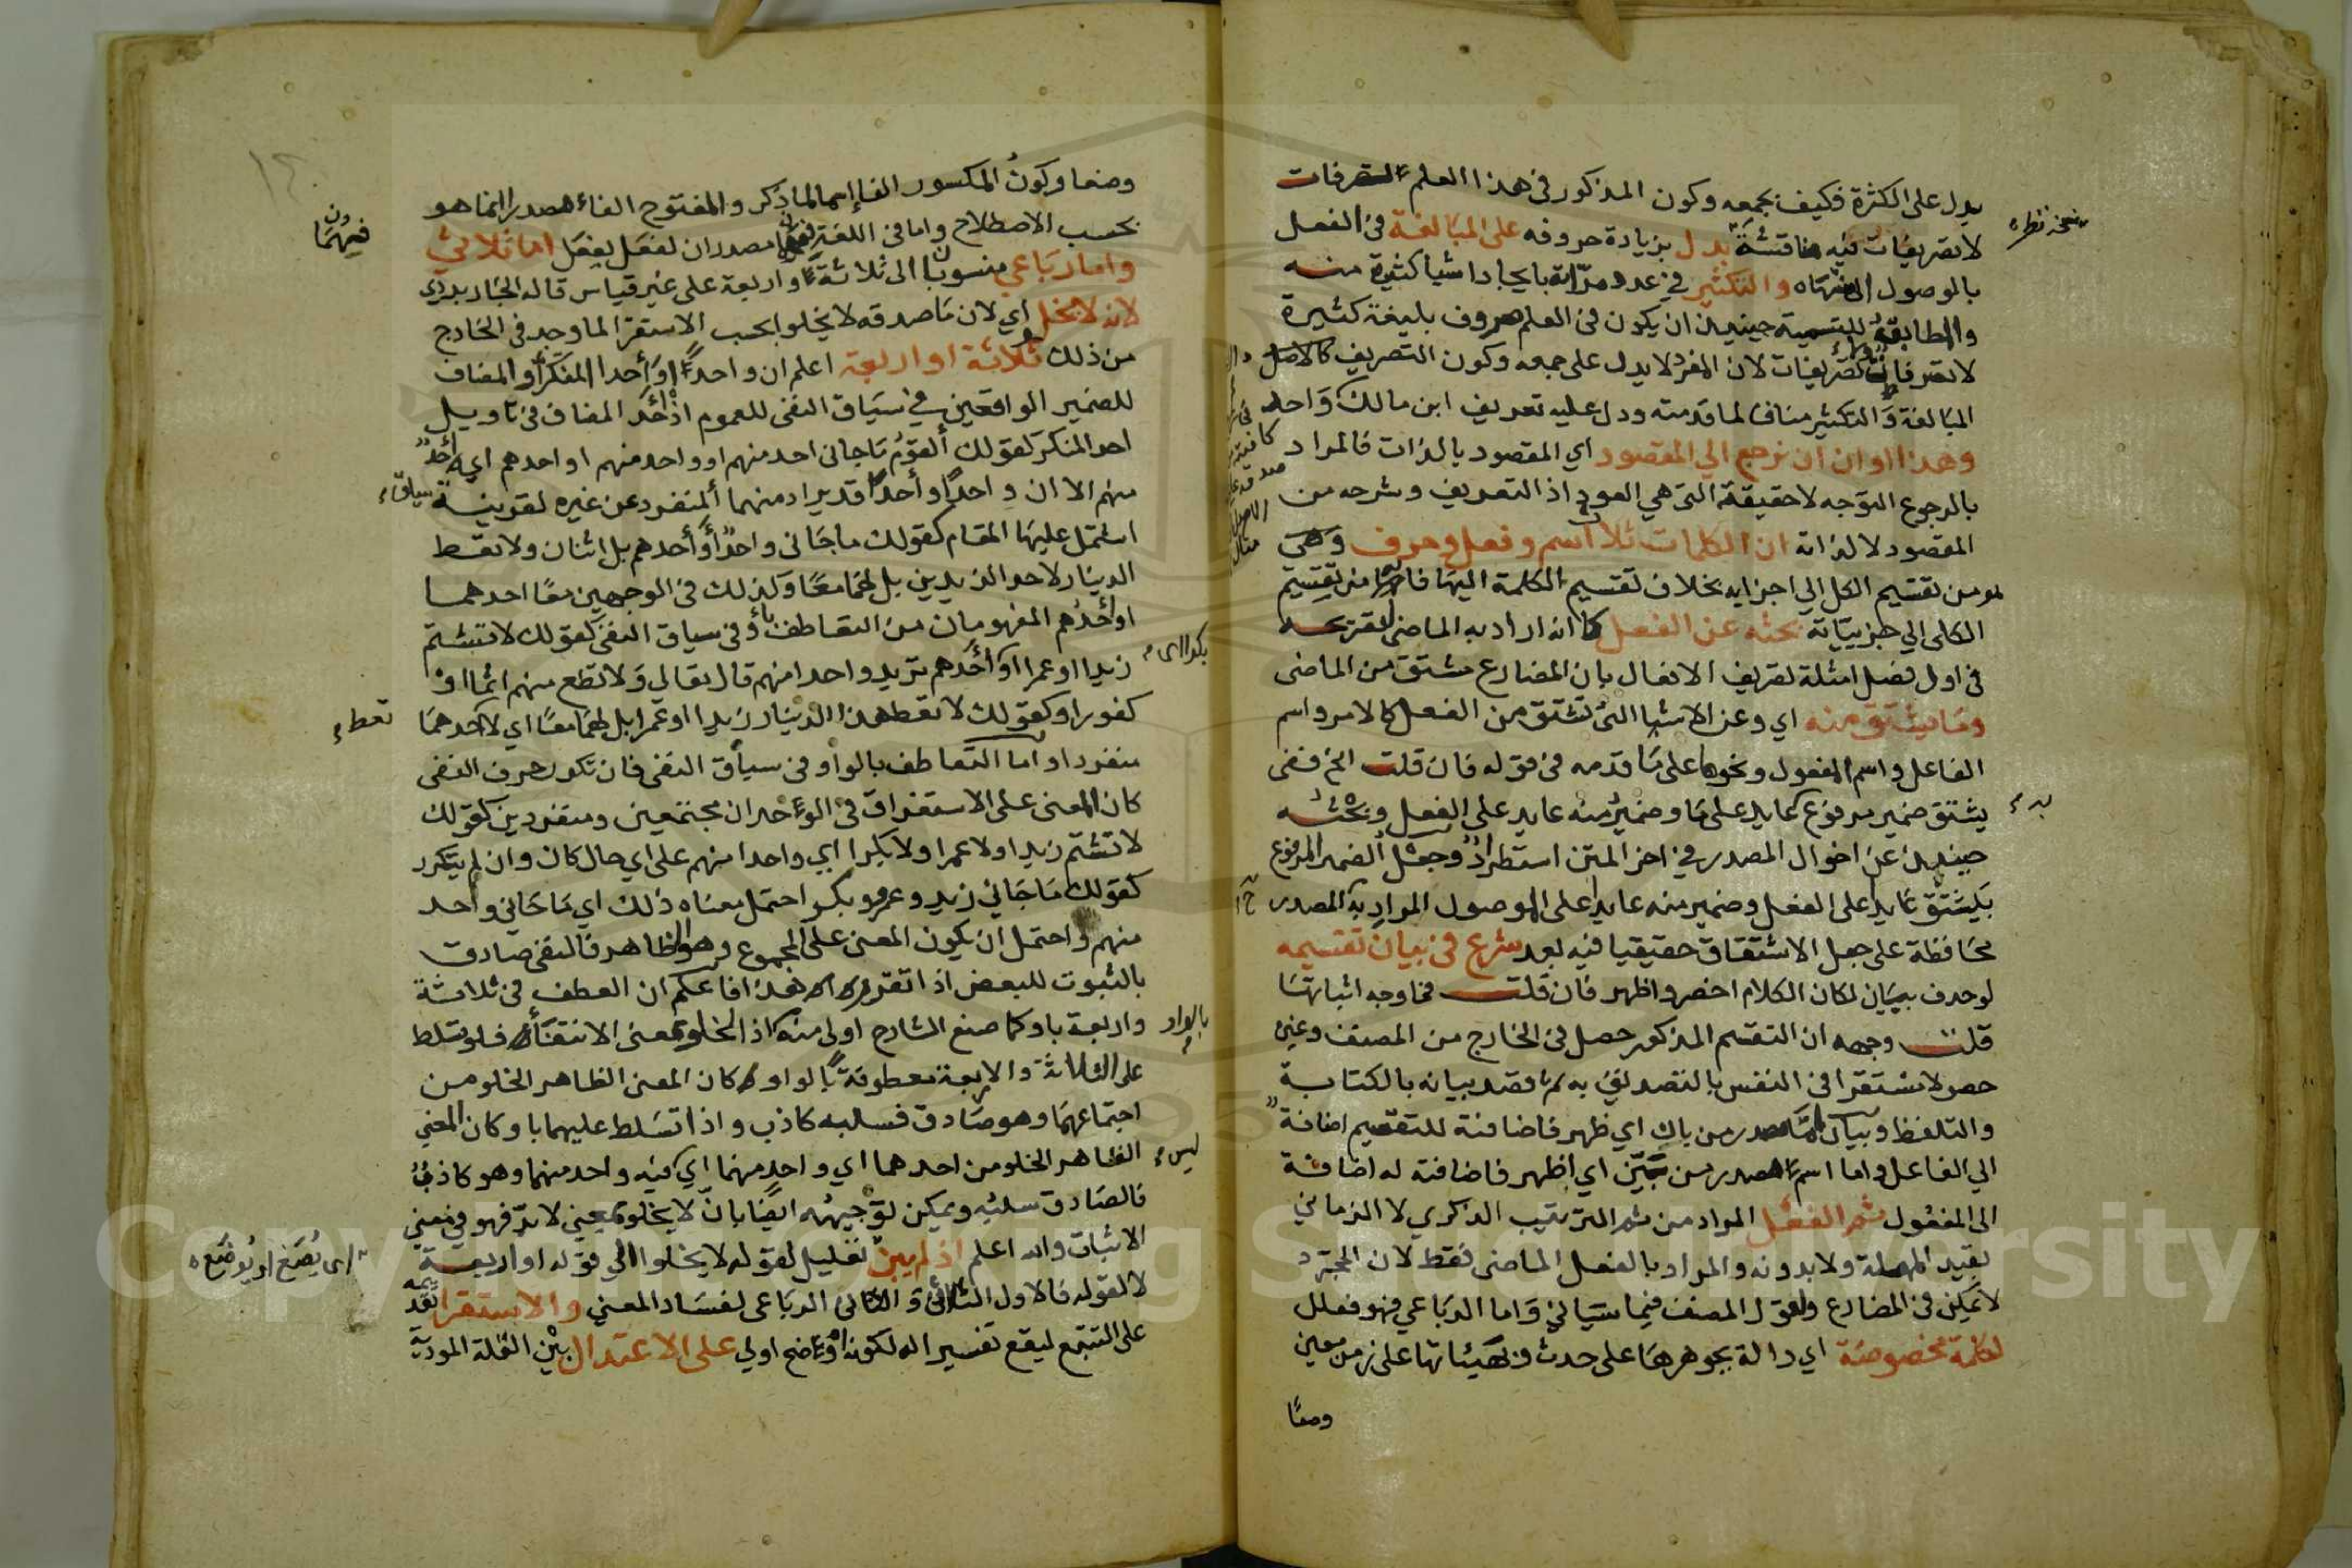 يدل على الكثرة فكيف بجمعه وكون المذكور في هذا العلم التصرفات
لا تصريفات فيه مناقشة يدل بزيادة حروفه على المبالغة في الفعل
بالوصول الى منتهاه والتكثير في عدد مراته بايجاد اشيا كثيرة منه
والمطابقة للتسمية حينيذ ان يكون في العلم حروف بليغة كثيرة
لا تصرفات ولا تصريفات لان المفرد لا يدل على جمعه وكون التصريف كالاصل
المبالغة والتكثير مناف لما قدمته ودل عليه تعريف ابن مالك واحد
وهذا اوان ان نرجع الي المقصود اي المقصود بالذات فالمراد
بالرجوع التوجه لا حقيقة التي هي العود اذ التعريف وشرحه من
المقصود لا لذاته ان الكلمات ثلاث اسم وفعل وحرف وهي
من تقسيم الكل الي اجزايه بخلاف تقسيم الكلمة اليها فانه من تقسيم
الكلى الي جزيياته بحثه عن الفعل كما انه اراد به الماضي
في اول فصل امثلة تصريف الافعال بان المضارع مشتق من الماضى
وما يشتق منه اي وعن الاشيا التي تشتق من الفعل كالامر واسم
الفاعل واسم المفعول ونحوها على ما قدمه في قوله فان قلت الخ ففى
يشتق ضمير مرفوع عايد على ما وضمير منه عايد على الفعل وبحثه
حينيذ عن احوال المصدر في اخر المتن استطراد وجعل الضمير المرفوع
بيشتق عايد على الفعل وضمير منه عايد على الموصول المراد به المصدر
محافظة على جعل الاشتقاق حقيقيا فيه بعد شرع في بيان تقسيمه
لو حذف ببيان لكان الكلام اخصر واظهر فان قلت فما وجه اثباتها
قلت وجهه ان التقسيم المذكور حصل في الخارج من المصنف وغيره
حصولا مستقرا في النفس بالتصديق به ثم قصد بيانه بالكتابة
والتلفظ وبيان اما مصدر من بان اي ظهر فاضافته للتقسيم اضافة
الي الفاعل واما اسم مصدر من بين اي اظهر فاضافته له اضافة
الى المفعول ثم الفعل المراد من ثم الترتيب الذكري لا الزماني
بقيد المهملة ولا بدونه والمراد بالفعل الماضى فقط لان المجرد
لا يمكن في المضارع ولقول المصنف فيما سياتي واما الرباعي فهو فعلل
لكلمة مخصوصة اي دالة بجوهرها على حدث وبهيئاتها على زمن معين
وضعا
وضعا وكون المكسور الفا اسما لما ذكر والمفتوح الفاء مصدرا انما هو
بحسب الاصطلاح واما في اللغة فهما مصدران لفعل يفعل اما ثلاثي
واما رباعي منسوبان الى ثلاثة واربعة على غير قياس قاله الجاربردي
لانه لا يخلو اي لان ما صدقه لا يخلو بحسب الاستقرا لما وجد في الخارج
من ذلك ثلاثة او اربعة اعلم ان واحدا او أحدا المنكر او المضاف
للضمير الواقعين في سياق النفي للعموم اذ أحد المضاف في تاويل
احد المنكر كقولك ألقوم ما جانى احد منهم او واحد منهم او احدهم اي أحد
منهم الا ان واحدا وأحدا قد يراد منهما ألمنفرد عن غيره لقرينة
اشتمل عليها المقام كقولك ما جانى واحد أو أحدهم بل اثنان ولا تعط
الدينار لاحد الزيدين بل لهما معا وكذلك في الوجهين معا احدهما
او أحدهم المفهومان من التعاطف بأو في سياق النفي كقولك لا تشتم
زيدا او عمرا او أحدهم تريد واحدا منهم قال تعالى ولا تطع منهم اثما او
كفورا وكقولك لا تعط هذا الدينار زيدا او عمرا بل لهما معا اي لاحدهما
منفردا واما التعاطف بالواو في سياق النفي فان تكرر حرف النفى
كان المعنى على الاستغراق في الواحد ان مجتمعين ومنفردين كقولك
لا تشتم زيدا ولا عمرا ولا بكرا اي واحدا منهم على اي حال كان وان لم يتكرر
كقولك ما جاني زيد وعمرو وبكر احتمل معناه ذلك اي ما جاني واحد
منهم واحتمل ان يكون المعنى على المجموع وهو الظاهر فالنفي صادق
بالثبوت للبعض اذا تقرر هذا فاعلم ان العطف في ثلاثة
واربعة باو كما صنع الشارح اولى منه اذ الخلو بمعنى الانتفاء فلو تسلط
على الثلاثة والاربعة معطوفة بالواو كان المعنى الظاهر الخلو من
اجتماعهما وهو صادق فسلبه كاذب واذا تسلط عليهما باو كان المعني
الظاهر الخلو من احدهما اي واحد منهما اي فيه واحد منهما وهو كاذب
فالصادق سلبه ويمكن توجيهه ايضا بان لا يخلو بمعني لا بد فهو في معني
الاثبات والله اعلم اذ لم يبن تعليل لقوله لا يخلو الي قوله او اربعة
لا لقوله فالاول الثلاثي والثاني الرباعى لفساد المعني والاستقرا
على التتبع ليقع تفسيرا له لكونه اوضح اولي على الاعتدال بين القلة المودية
فيهما
سياق
بكرا اى
تعط
بالواو
ليس
اى يصغ او يوضع